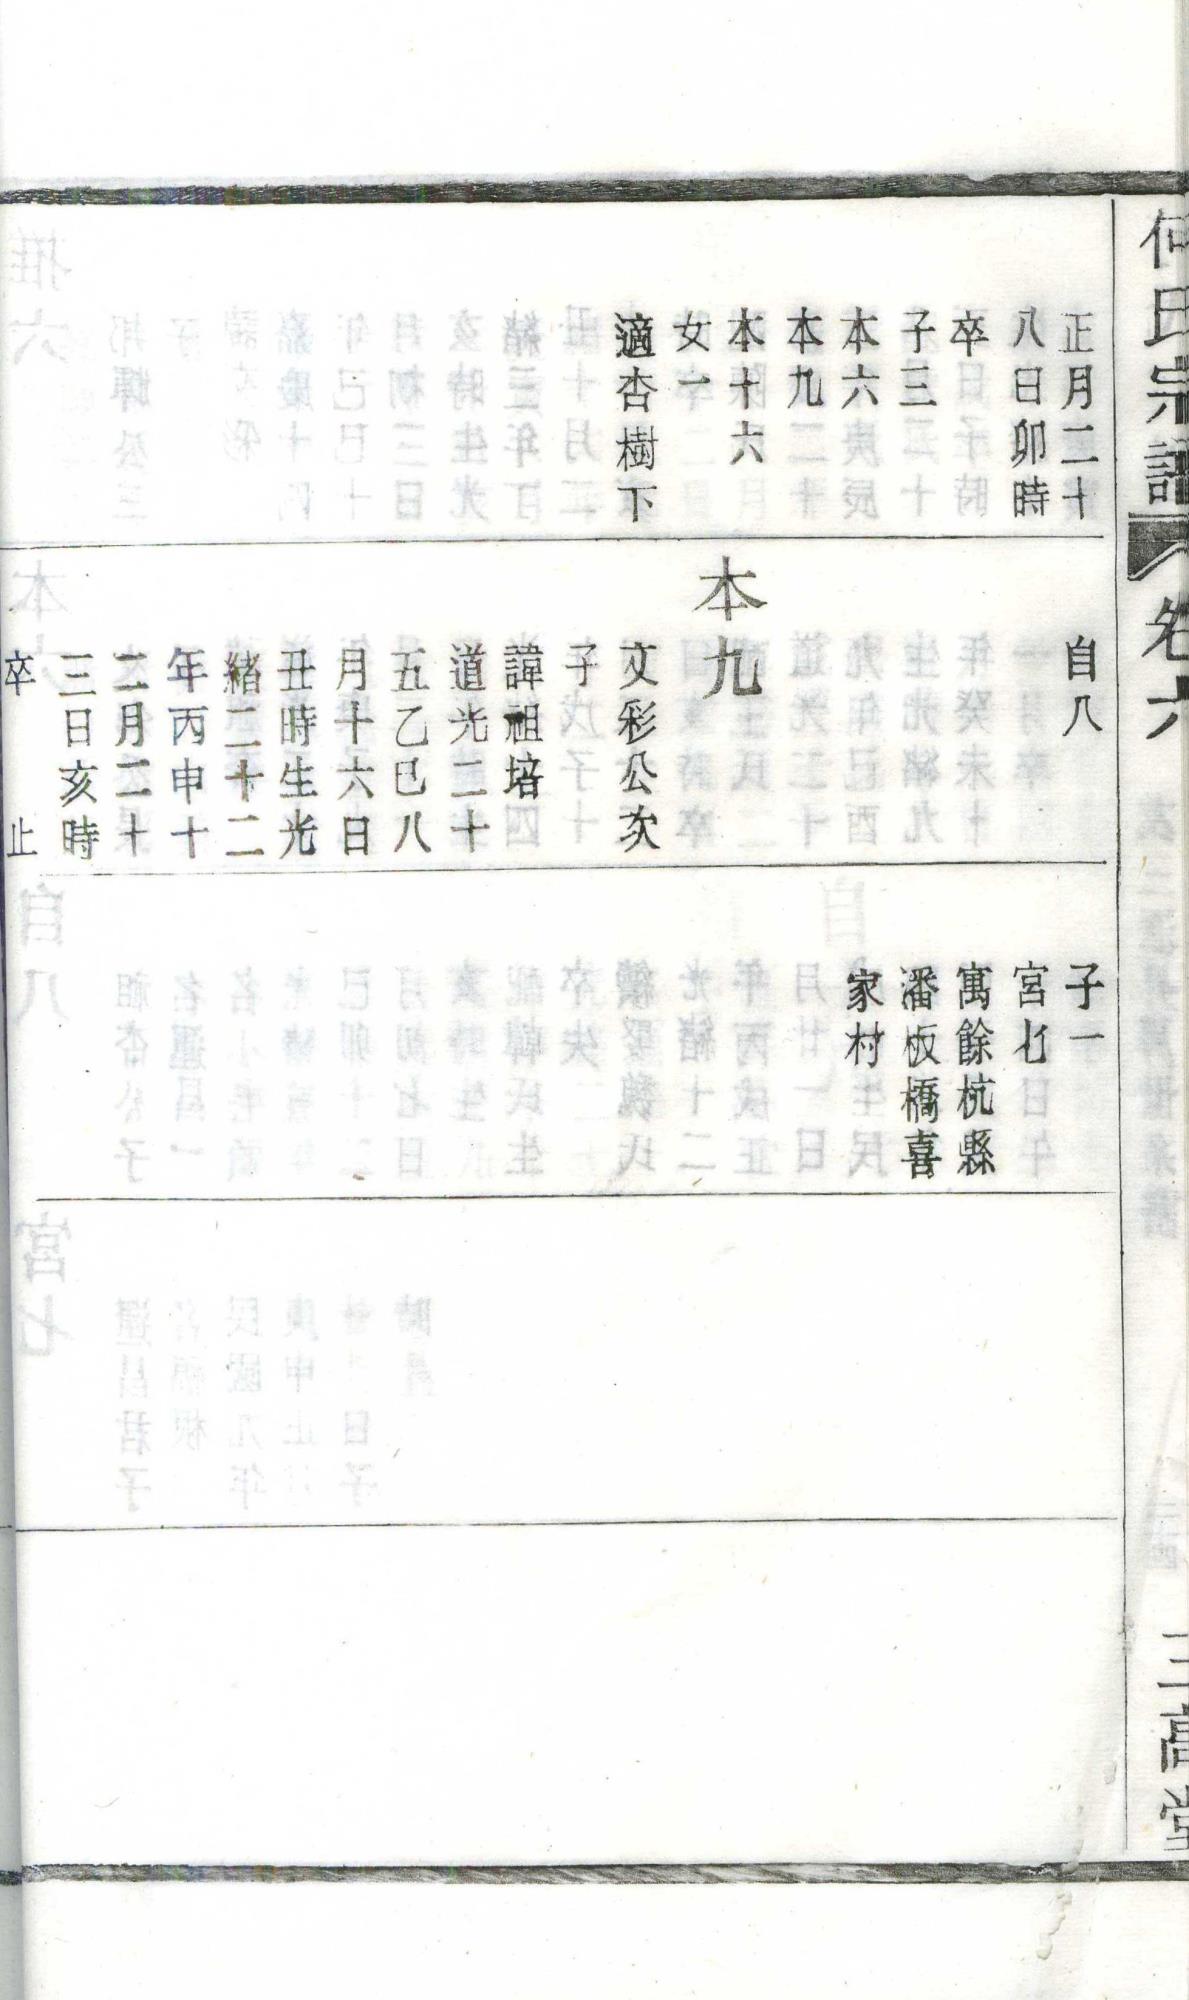 何氏宗譜
卷六
三高堂
正月二十
八日卯時
卒
子三
本六
本九
本十六
女一
適杏樹下
自八
本九
文彩公次
子
諱祖培
道光二十
五乙巳八
月十六日
丑時生光
緒二十二
年丙申十
二月二十
三日亥時
卒 止
子一
宮七
寓餘杭縣
潘板橋喜
家村